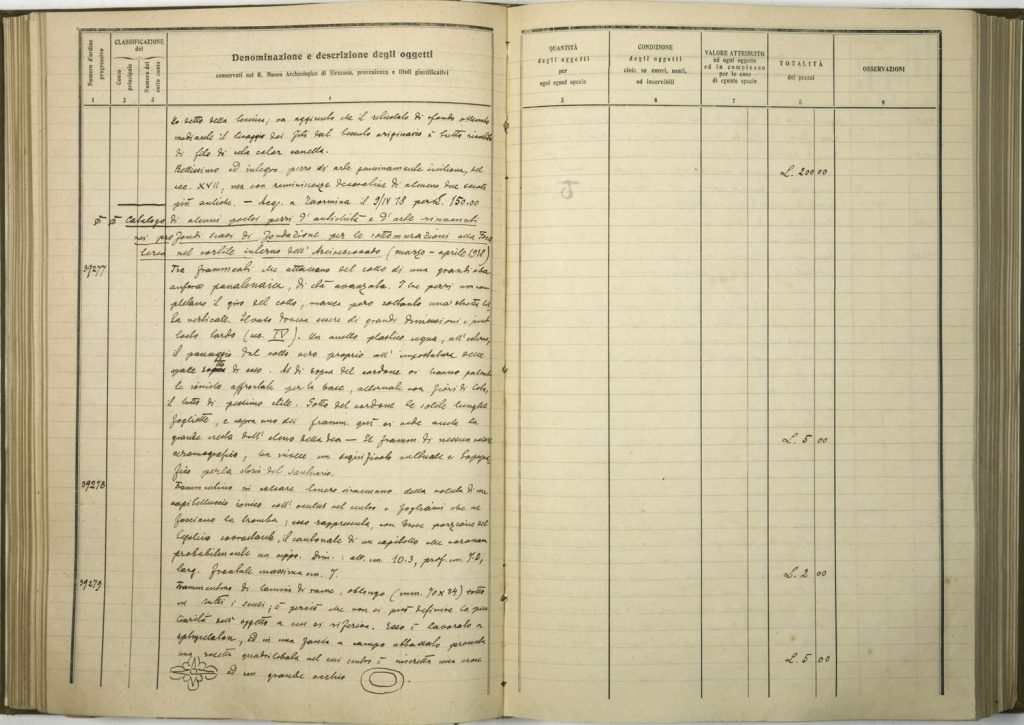 Numero d'ordine progressivo
CLASSIFICAZIONE del
Conto principale
Numero del sotto conto
Denominazione e descrizione degli oggetti
conservati nel R. Museo Archeologico di Siracusa, provenienza e titoli giustificativi
1 2 3 4
QUANTITÀ
degli oggetti
per
ogni egual specie
5
CONDIZIONE
degli oggetti
cioè: se nuovi, usati,
od inservibili
6
VALORE ATTRIBUITO
ad ogni oggetto
ed in complesso
per le cose
di eguale specie
7
TOTALITÀ
dei prezzi
8
OSSERVAZIONI
9
Ho detto della va aggiunto che il reticolato di sfondo ottenuto
mediante il dei fili dal tessuto originario è tutto
di filo di seta color cannella.
Bellissimo ed integro pezzo di arte siciliana, del
sec. XVII, ma con reminiscenze decorative di almeno due secoli
più antiche. — Acq. a Taormina il 9/IV 18 per L. 150.00
L. 200 00
Catalogo di alcuni pochi pezzi d'antichità e d'arte rinvenuti
nei profondi scavi di fondazione per le sottomurazioni alla
nel cortile interno dell'Arcivescovado (marzo - aprile 1918)
39277
Tre frammenti che attaccano del collo di una grandiosa
anfora panatenaica, di età avanzata. I tre pezzi non com
pletano il giro del collo, manca però soltanto una
la verticale. Il vaso doveva essere di grandi dimensioni e piut
tosto tardo (sec. IV). Un anello plastico segna, all'esterno,
il passaggio dal collo vero proprio all' impostatura delle
spalle di esso. Al di sopra del cordone si hanno palmet
te ioniche affrontate per la base, alternate con fiori di loto,
il tutto di pessimo stile. Sotto del cordone le solite lunghe
fogliette, e sopra uno dei framm. si vede anche la
grande cresta dell' elmo della dea — Il framm. di nessun valore
L. 5 00
ceramografico, ha invece un significato cultuale e topogra
fico per la storia del santuario.
39278
Frammentino in calcare tenero siracusano della voluta di un
capitelluccio ionico coll' oculus nel centro e fogliami che ne
fasciano la tromba; esso rappresenta, con breve porzione del
sovrastante, il cantonale di un capitello che coronava
probabilmente un cippo. Dim.: alt. cm. 10.3, prof. cm. 7.2,
larg. frontale massima cm. 7.
L. 2 00
39279
Frammentino di lamina di rame, oblongo (mm. 70 x 34) rotto
in tutti i sensi; è perciò che non si può definire la
dell' oggetto a cui si riferiva. Esso è lavorato a
sphyrelaton, ed in una fascia a campo abbassato presenta
una rosetta quadrilobata nel cui centro è inscritta una croce
L. 5 00
ed un grande occhio